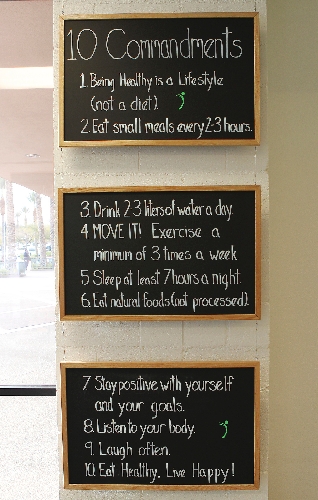 10 Commandments
1. Being Healthy is a Lifestyle
(not a diet)
2. Eat small meals every 2-3 hours.
3. Drink 2-3 liters of water a day.
4 MOVE IT! Exercise a
minimum of 3 times a week
5 Sleep at least 7 hours a night.
6. Eat natural foods (not processed).
7 Stay positive with yourself
and your goals.
8. Listen to your body.
9. Laugh often.
10. Eat Healthy, Live Happy!